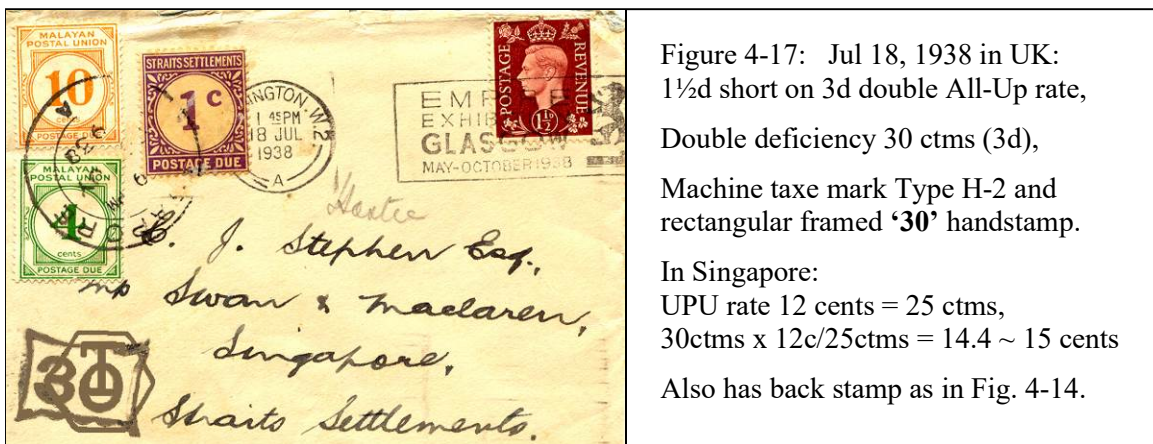 MALAYAN
POSTAL UNION
10
cents
POSTAGE DUE
STRAITS SETTLEMENTS
1c
POSTAGE DUE
INGTON. W2
1 45PM
18 JUL
1938
A
EXHIB
GLASGOW
MAY-OCTOBER 1938
POSTAGE
REVENUE
1½D
MALAYAN
POSTAL UNION
4
cents
POSTAGE DUE
J. Stephen Esq.,
Swan & Maclaren,
Singapore,
Straits Settlements.
30
T
Figure 4-17: Jul 18, 1938 in UK:
1½d short on 3d double All-Up rate,
Double deficiency 30 ctms (3d),
Machine taxe mark Type H-2 and
rectangular framed ‘30’ handstamp.
In Singapore:
UPU rate 12 cents = 25 ctms,
30ctms x 12c/25ctms = 14.4 ~ 15 cents
Also has back stamp as in Fig. 4-14.